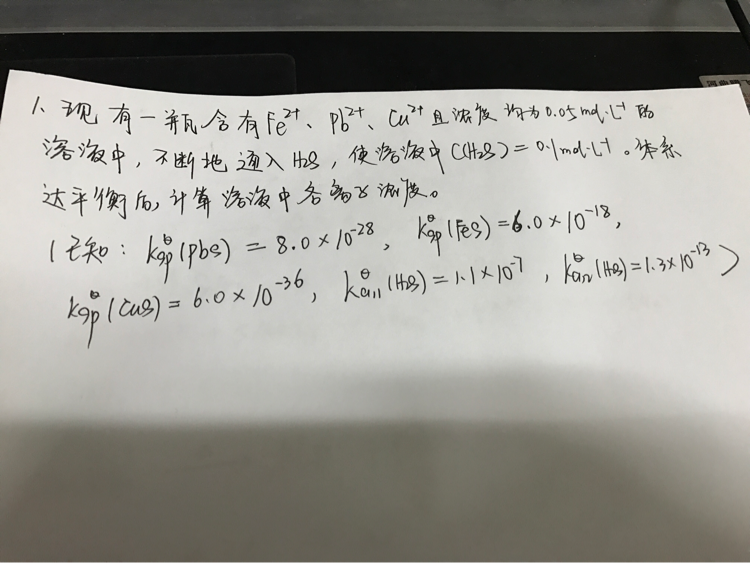 1、现有一瓶含有Fe²⁺、Pb²⁺、Cu²⁺且浓度均为0.05mol·L⁻¹的
溶液中，不断地通入H₂S，使溶液中C(H₂S)=0.1mol·L⁻¹。体系
达平衡后，计算溶液中各离子浓度。
(已知：K^θsp(PbS)=8.0×10⁻²⁸，K^θsp(FeS)=6.0×10⁻¹⁸，
K^θsp(CuS)=6.0×10⁻³⁶，K^θa1(H₂S)=1.1×10⁻⁷，K^θa2(H₂S)=1.3×10⁻¹³)